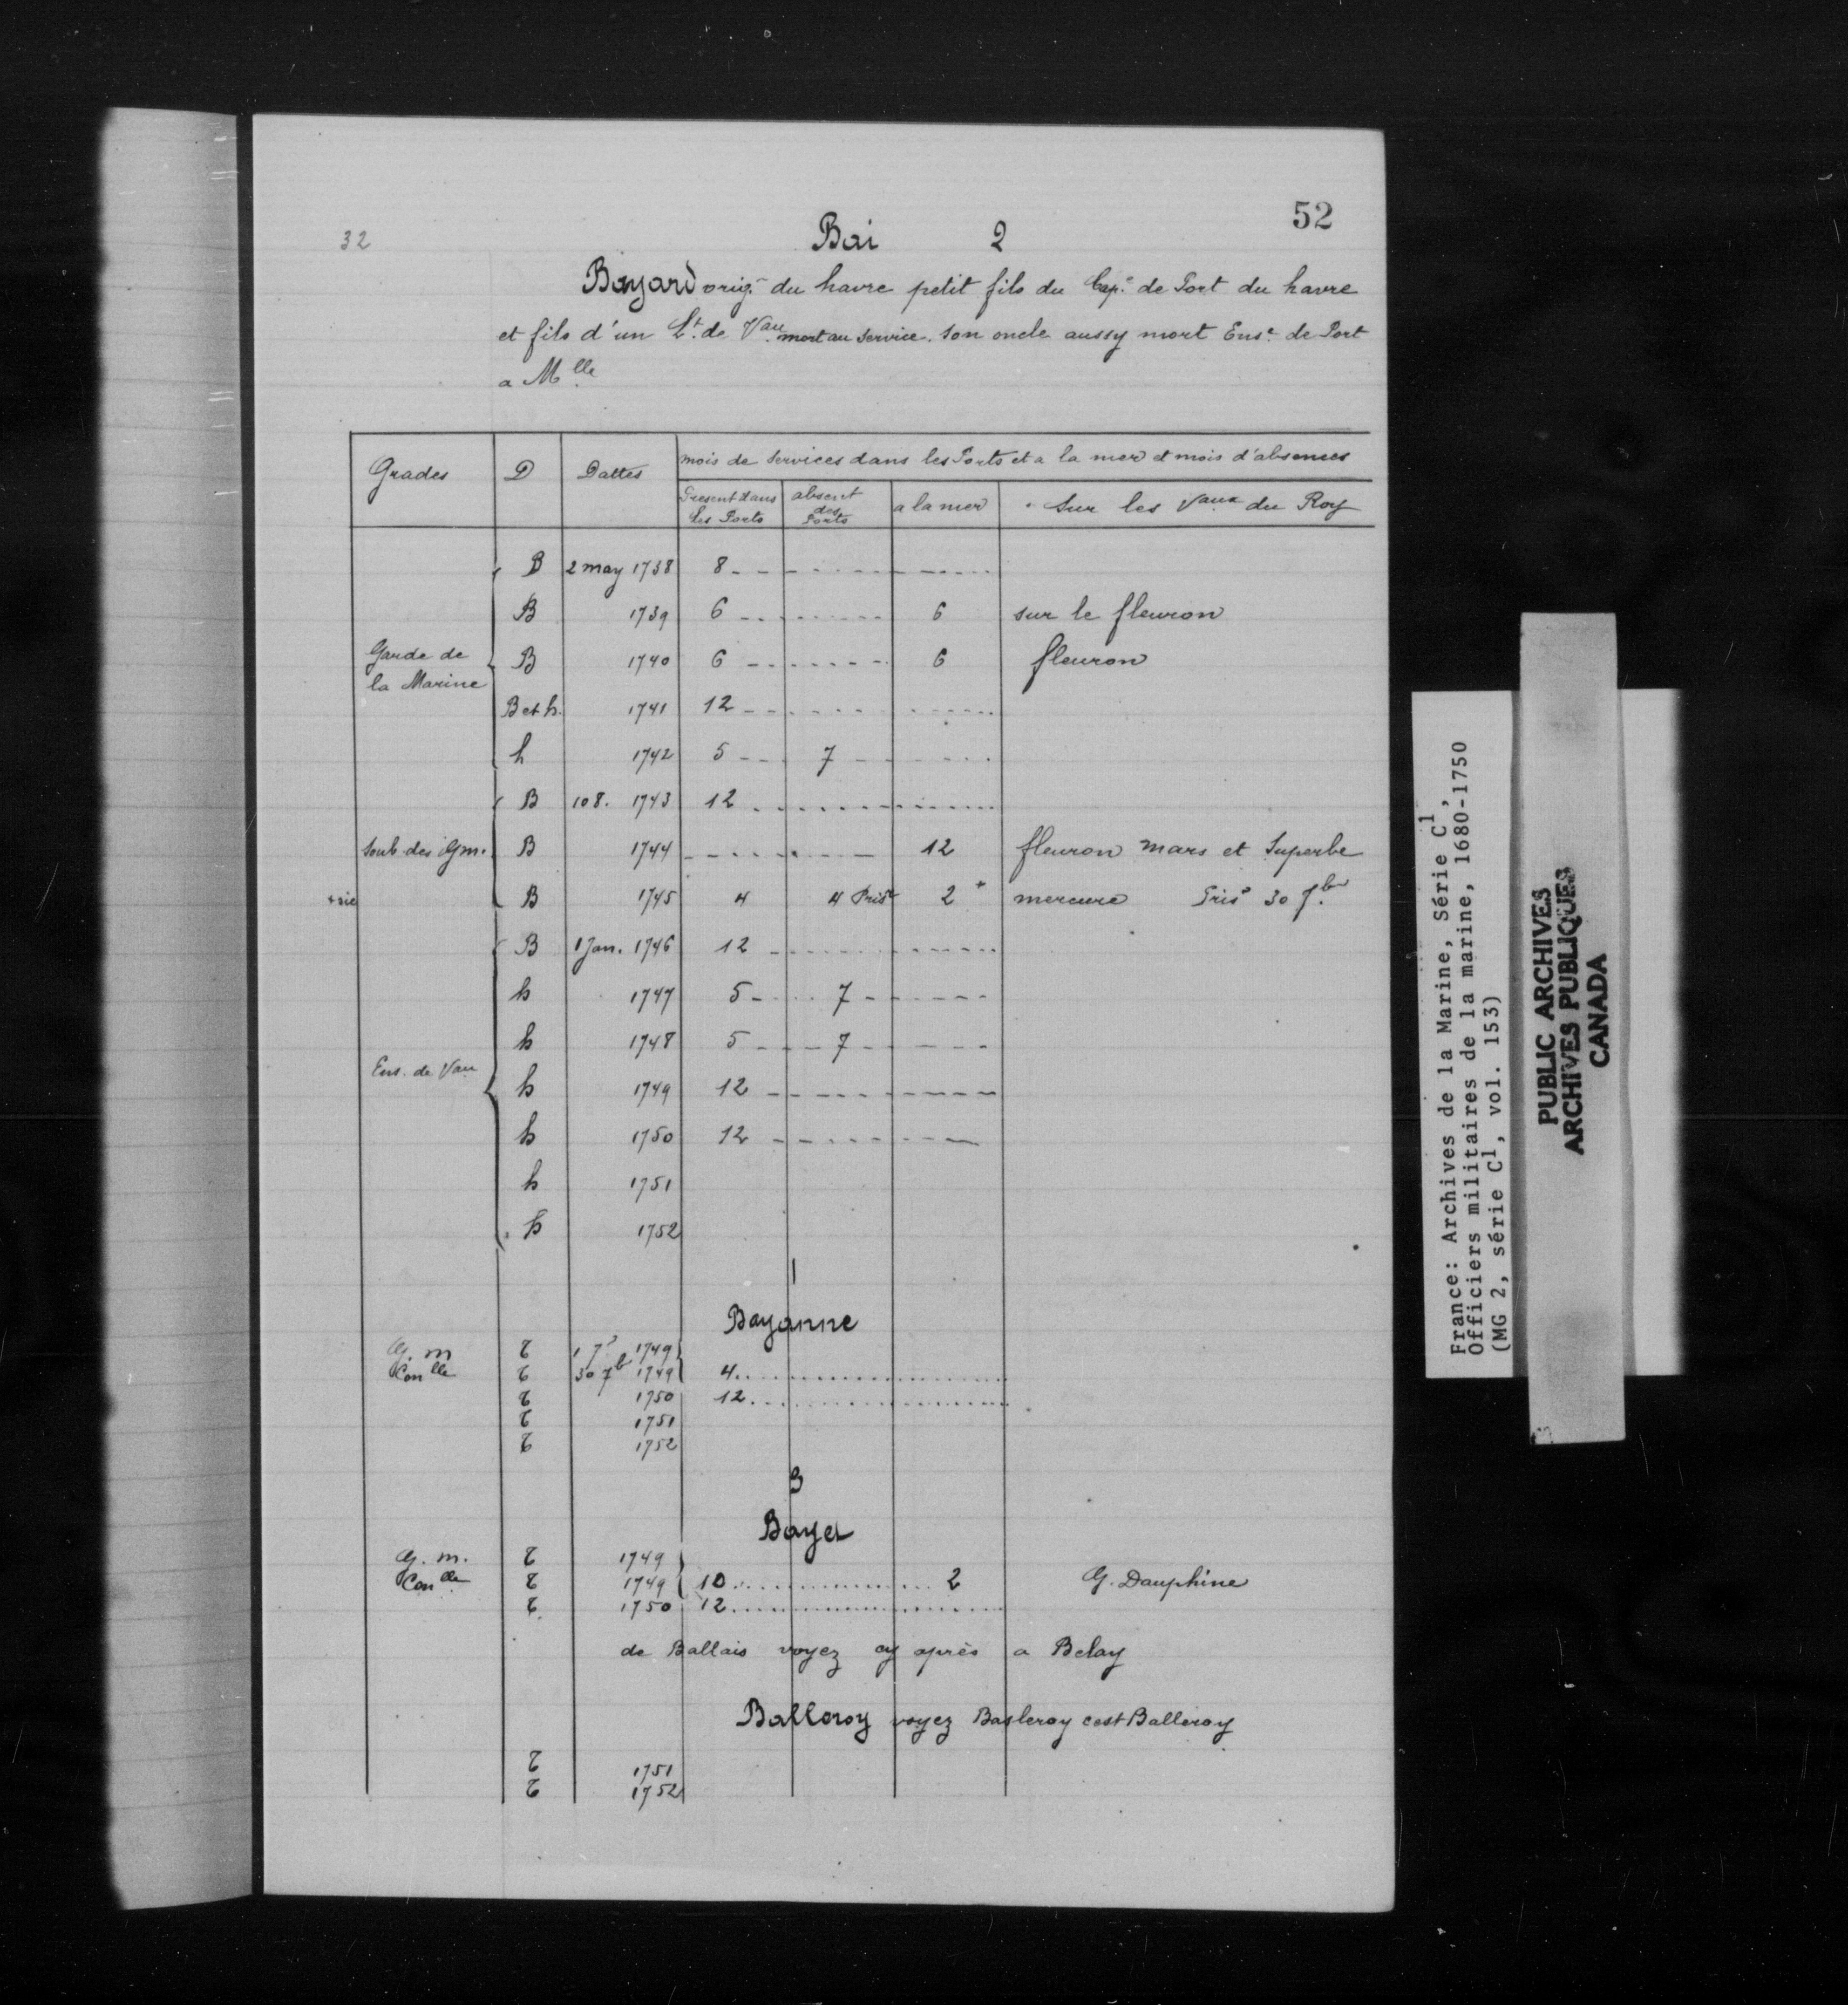 52
32 Bai 2
Bayard orig. du havre petit fils du Cap.e de Port du havre
et fils d'un Lt. de Vau mort au service. son oncle aussy mort Ense de Port
a Mlle
Grades D Dattes mois de services dans les Ports et a la mer et mois d'absences
Present dans les Ports absent des Ports a la mer Sur les Vaux du Roy
B 2 may 1738 8
B 1739 6 6 sur le fleuron
Garde de la Marine B 1740 6 6 fleuron
B et h. 1741 12
h 1742 5 7
B 1 08. 1743 12
Soub. des Gm. B 1744 12 fleuron mars et Superbe
+ sic B 1745 4 4 Prisr 2 + mercure Pris° 30 7.br
B 1 Jan. 1746 12
h 1747 5 7
h 1748 5 7
Ens. de Vau h 1749 12
h 1750 12
h 1751
h 1752
1
Bayanne
G. m T 1 7s 1749
Con lle T 30 7b 1749 4
T 1750 12
T 1751
T 1752
3
Bayet
G. m. T 1749
Con lle T 1749 10 2 G. Dauphine
T. 1750 12
de Ballais voyez cy après a Belay
Balleroy voyez Basleroy cest Balleroy
T 1751
T 1752
France: Archives de la Marine, Série C1,
Officiers militaires de la marine, 1680-1750
(MG 2, série C1, vol. 153)
PUBLIC ARCHIVES
ARCHIVES PUBLIQUES
CANADA